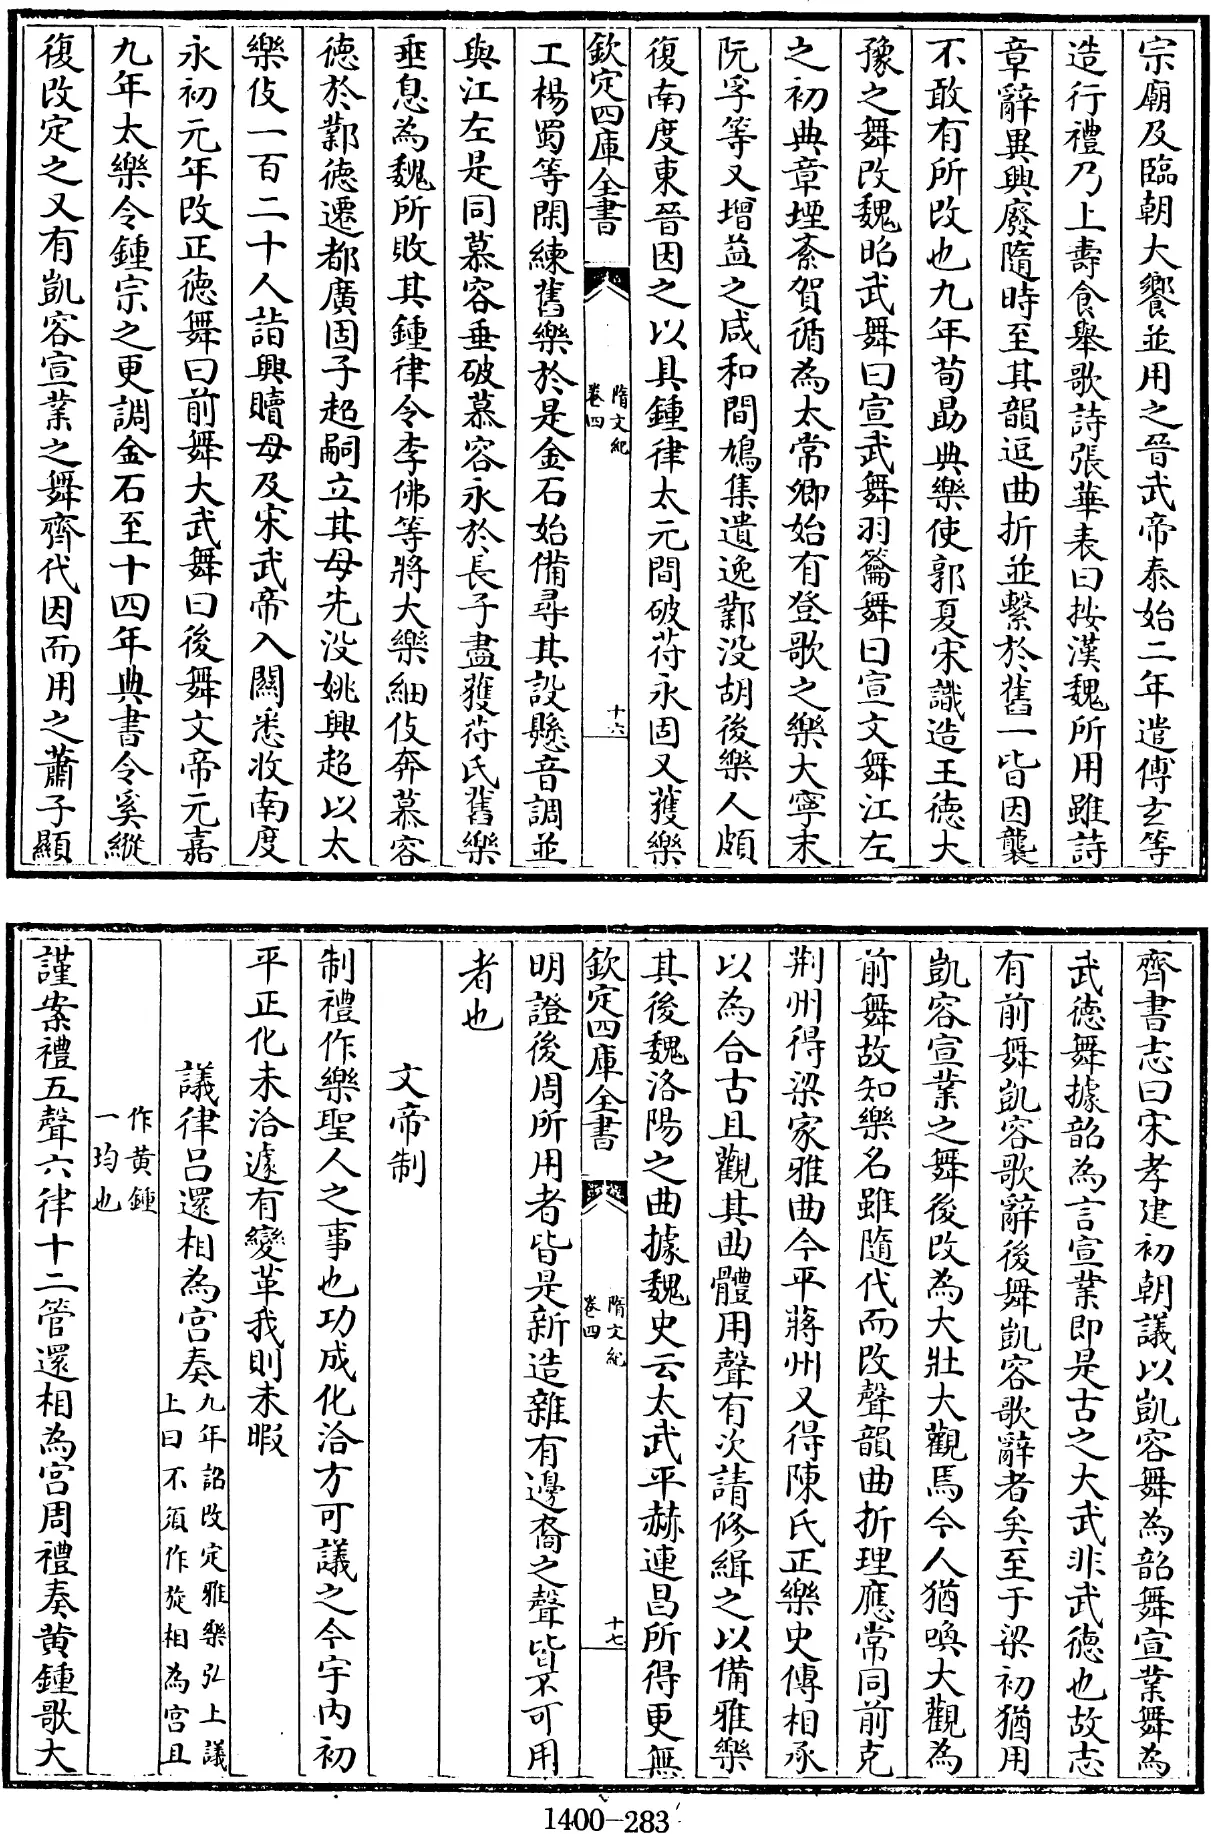 宗廟及臨朝大饗並用之晉武帝泰始二年遣傅玄等
造行禮乃上壽食舉歌詩張華表曰按漢魏所用雖詩
章辭異興廢隨時至其韻逗曲折並繫於舊一皆因襲
不敢有所改也九年荀勗典樂使郭夏宋識造王德大
豫之舞改魏昭武舞曰宣武舞羽籥舞曰宣文舞江左
之初典章堙紊賀循為太常卿始有登歌之樂大寧末
阮孚等又增益之咸和間鳩集遺逸鄴没胡後樂人頗
復南度東晉因之以具鍾律太元間破苻永固又獲樂
欽定四庫全書
隋文紀
卷四
十六
工楊蜀等閑練舊樂於是金石始備尋其設懸音調並
與江左是同慕容垂破慕容永於長子盡獲苻氏舊樂
垂息為魏所敗其鍾律令李佛等將大樂細伎奔慕容
德於鄴德遷都廣固子超嗣立其母先没姚興超以太
樂伎一百二十人詣興贖母及宋武帝入關悉收南度
永初元年改正德舞曰前舞大武舞曰後舞文帝元嘉
九年太樂令鍾宗之更調金石至十四年典書令奚縱
復改定之又有凱容宣業之舞齊代因而用之蕭子顯
齊書志曰宋孝建初朝議以凱容舞為韶舞宣業舞為
武德舞據韶為言宣業即是古之大武非武德也故志
有前舞凱容歌辭後舞凱容歌辭者矣至于梁初猶用
凱容宣業之舞後改為大壯大觀焉今人猶喚大觀為
前舞故知樂名雖隨代而改聲韻曲折理應常同前克
荆州得梁家雅曲今平蔣州又得陳氏正樂史傳相承
以為合古且觀其曲體用聲有次請修緝之以備雅樂
其後魏洛陽之曲據魏史云太武平赫連昌所得更無
欽定四庫全書
隋文紀
卷四
十七
明證後周所用者皆是新造雜有邊裔之聲皆不可用
者也
文帝制
制禮作樂聖人之事也功成化洽方可議之今宇内初
平正化未洽遽有變革我則未暇
議律呂還相為宮奏
九年詔改定雅樂弘上議
上曰不須作旋相為宮且
作黄鍾
一均也
謹案禮五聲六律十二管還相為宮周禮奏黄鍾歌大
1400-283